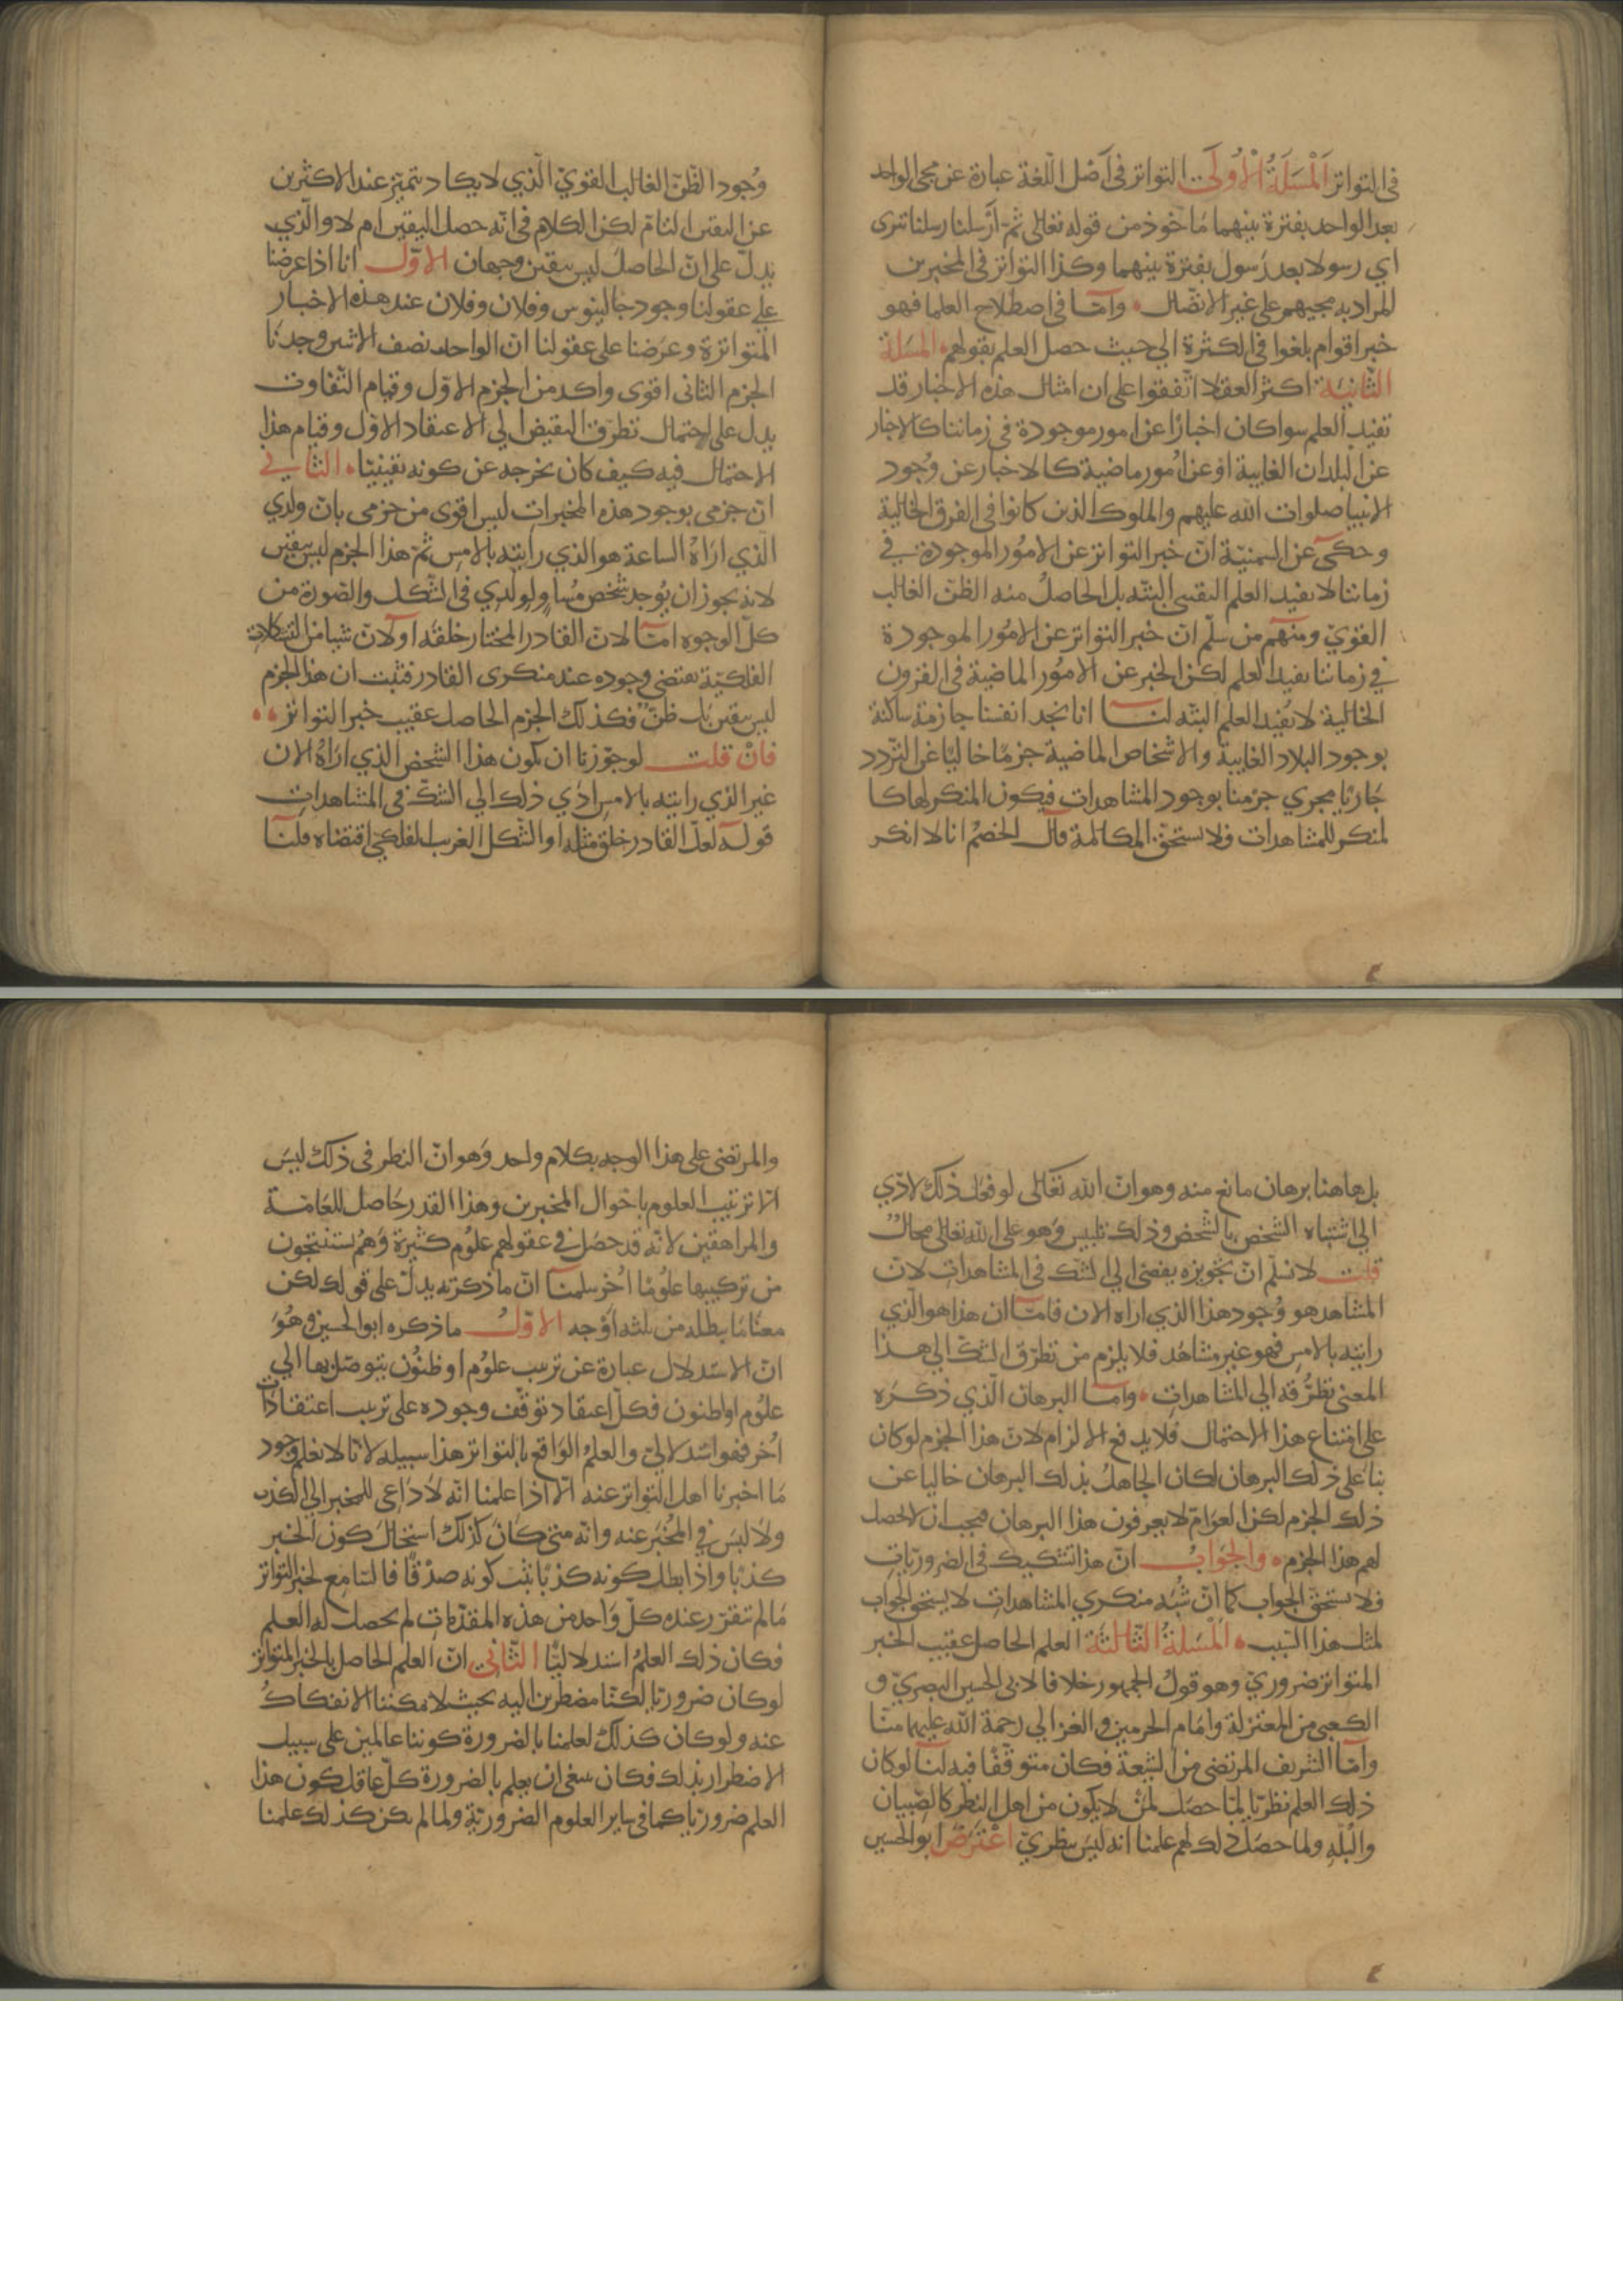 في التواتر المسئلة الأولى التواتر في أصل اللغة عبارة عن مجى الواحد
بعد الواحد بفترة بينهما مأخوذ من قوله تعالى ثم أرسلنا رسلنا تترى
اي رسولا بعد رسول بفترة بينهما وكذا التواتر في المخبرين
المراد به مجيهم على غير الاتصال وأما في اصطلاح العلما فهو
خبر اقوام بلغوا في الكثرة الي حيث حصل العلم بقولهم المسئلة
الثانية اكثر العقلا اتفقوا على ان امثال هذه الاخبار قد
تفيد العلم سوا كان اخبارا عن امور موجودة في زماننا كالاخبار
عن البلدان الغايبة او عن أمور ماضية كالاخبار عن وجود
الانبيا صلوات الله عليهم والملوك الذين كانوا في القرون الخالية
وحكى عن السمنية ان خبر التواتر عن الامور الموجودة في
زماننا لا يفيد العلم اليقيني البتة بل الحاصل منه الظن الغالب
القوي ومنهم من سلم ان خبر التواتر عن الامور الموجودة
في زماننا يفيد العلم لكن الخبر عن الامور الماضية في القرون
الخالية لا يفيد العلم البتة لنا انا نجد انفسنا جازمة ساكنة
بوجود البلاد الغايبة والاشخاص الماضية جزما خاليا عن التردد
جاريا مجري جزمنا بوجود المشاهدات فيكون المنكر لها كا
لمنكر للمشاهدات فلا يستحق المكالمة قال الخصم انا لا انكر
وجود الظن الغالب القوي الذي لا يكاد يتميز عند الاكثرين
عن اليقين التام لكن الكلام في انه حصل اليقين ام لا والذي
يدل على ان الحاصل ليس بيقين وجهان الاول انا اذا عرضنا
على عقولنا وجود جالينوس وفلان وفلان عند هذه الاخبار
المتواترة وعرضنا على عقولنا ان الواحد نصف الاثنين وجدنا
الجزم الثاني اقوى واكد من الجزم الاول وقيام التفاوت
يدل على احتمال تطرق النقيض الي الاعتقاد الاول وقيام هذا
الاحتمال فيه كيف كان يخرجه عن كونه يقينيا الثاني
ان جزمي بوجود هذه المخبرات ليس اقوى من جزمي بان ولدي
الذي اراه الساعة هو الذي رايته بالامس ثم هذا الجزم ليس بيقين
لانه يجوز ان يوجد شخص مساو لولدي في الشكل والصورة من
كل الوجوه اما لان القادر المختار خلقه او لان شيا من التشكلات
الفلكية يقتضي وجوده عند منكرى القادر فثبت ان هذا الجزم
ليس بيقين بل ظن فكذلك الجزم الحاصل عقيب خبر التواتر
فان قلت لو جوزنا ان يكون هذا الشخص الذي اراه الان
غير الذي رايته بالامس ادي ذلك الي الشك في المشاهدات
قوله لعل القادر خلق مثله او الشكل الغريب الفلكي اقتضاه قلنا
بل هاهنا برهان مانع منه وهو ان الله تعالى لو فعل ذلك لادي
الي اشتباه الشخص بالشخص وذلك تلبيس وهو على الله تعالى محال
قلت لا نسلم ان تجويزه يفضي الي الشك في المشاهدات لان
المشاهد هو وجود هذا الذي اراه الان فاما ان هذا هو الذي
رايته بالامس فهو غير مشاهد فلا يلزم من تطرق الشك الي هذا
المعنى تطرقه الي المشاهدات واما البرهان الذي ذكره
على امتناع هذا الاحتمال فلا يدفع الالزام لان هذا الجزم لو كان
بنا على ذلك البرهان لكان الجاهل بذلك البرهان خاليا عن
ذلك الجزم لكن العوام لا يعرفون هذا البرهان فيجب ان لا يحصل
لهم هذا الجزم والجواب ان هذا تشكيك في الضروريات
فلا يستحق الجواب كما ان شبه منكري المشاهدات لا يستحق الجواب
لمثل هذا السبب المسئلة الثالثة العلم الحاصل عقيب الخبر
المتواتر ضروري وهو قول الجمهور خلافا لابي الحسين البصري و
الكعبي من المعتزلة وامام الحرمين والغزالي رحمة الله عليهما منا
وأما الشريف المرتضى من الشيعة فكان متوقفا فيه لنا لو كان
ذلك العلم نظريا لما حصل لمن لا يكون من اهل النظر كالصبيان
والبله ولما حصل ذلك لهم علمنا انه ليس بنظري اعترض ابو الحسين
والمرتضى على هذا الوجه بكلام واحد وهو ان النظر في ذلك ليس
الا ترتيب العلوم باحوال المخبرين وهذا القدر حاصل للعامة
والمراهقين لانه قد حصل في عقولهم علوم كثيرة وهم يستنتجون
من تركيبها علوما أخر سلمنا ان ما ذكرته يدل على قولك لكن
معنا ما يبطله من ثلثه أوجه الاول ما ذكره ابو الحسين وهو
ان الاستدلال عبارة عن ترتيب علوم او ظنون يتوصل بها الي
علوم او ظنون فكل اعتقاد توقف وجوده على ترتيب اعتقادات
أخر فهو استدلالي والعلم الواقع بالتواتر هذا سبيله لانا لا نعلم وجود
ما اخبرنا اهل التواتر عنه الا اذا علمنا انه لا داعي للمخبر الي الكذب
ولا لبس في المخبر عنه وانه متى كان كذلك استحال كون الخبر
كذبا واذا بطل كونه كذبا ثبت كونه صدقا فالسامع لخبر التواتر
ما لم تتقرر عنده كل واحد من هذه المقدمات لم يحصل له العلم
فكان ذلك العلم استدلاليا الثاني ان العلم الحاصل بالخبر المتواتر
لو كان ضروريا لكنا مضطرين اليه بحيث لا يمكننا الانفكاك
عنه ولو كان كذلك لعلمنا بالضرورة كوننا عالمين على سبيل
الاضطرار بذلك فكان ينبغي ان يعلم بالضرورة كل عاقل كون هذا
العلم ضروريا كما في ساير العلوم الضرورية ولما لم يكن كذلك علمنا